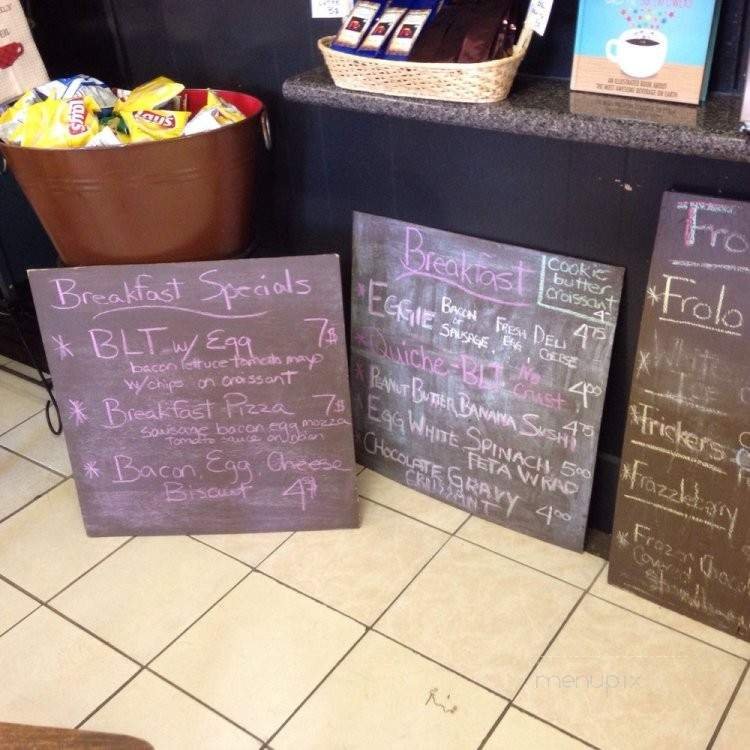 Lay's
AN ILLUSTRATED BOOK ABOUT
THE MOST AWESOME BEVERAGE ON EARTH
Breakfast Specials
* BLT w/ Egg 7$
bacon lettuce tomato mayo
w/chips on croissant
* Breakfast Pizza 7$
sausage bacon egg mozza
tomato sauce on naan
* Bacon, Egg, Cheese
Biscuit 4
Breakfast
cookie
butter
croissant
4
* EGGIE BACON or SAUSAGE, FRESH EGG, DELI CHEESE 4.75
* Quiche-BLT No Crust 4.00
* PEANUT BUTTER BANANA SUSHI 4.75
* EGG WHITE SPINACH
FETA WRAP 5.00
* CHOCOLATE GRAVY
CROISSANT 4.00
Fro
* Frolo
* White
* Frickers
* Frazzleberry
* Frozen Choco
menupix